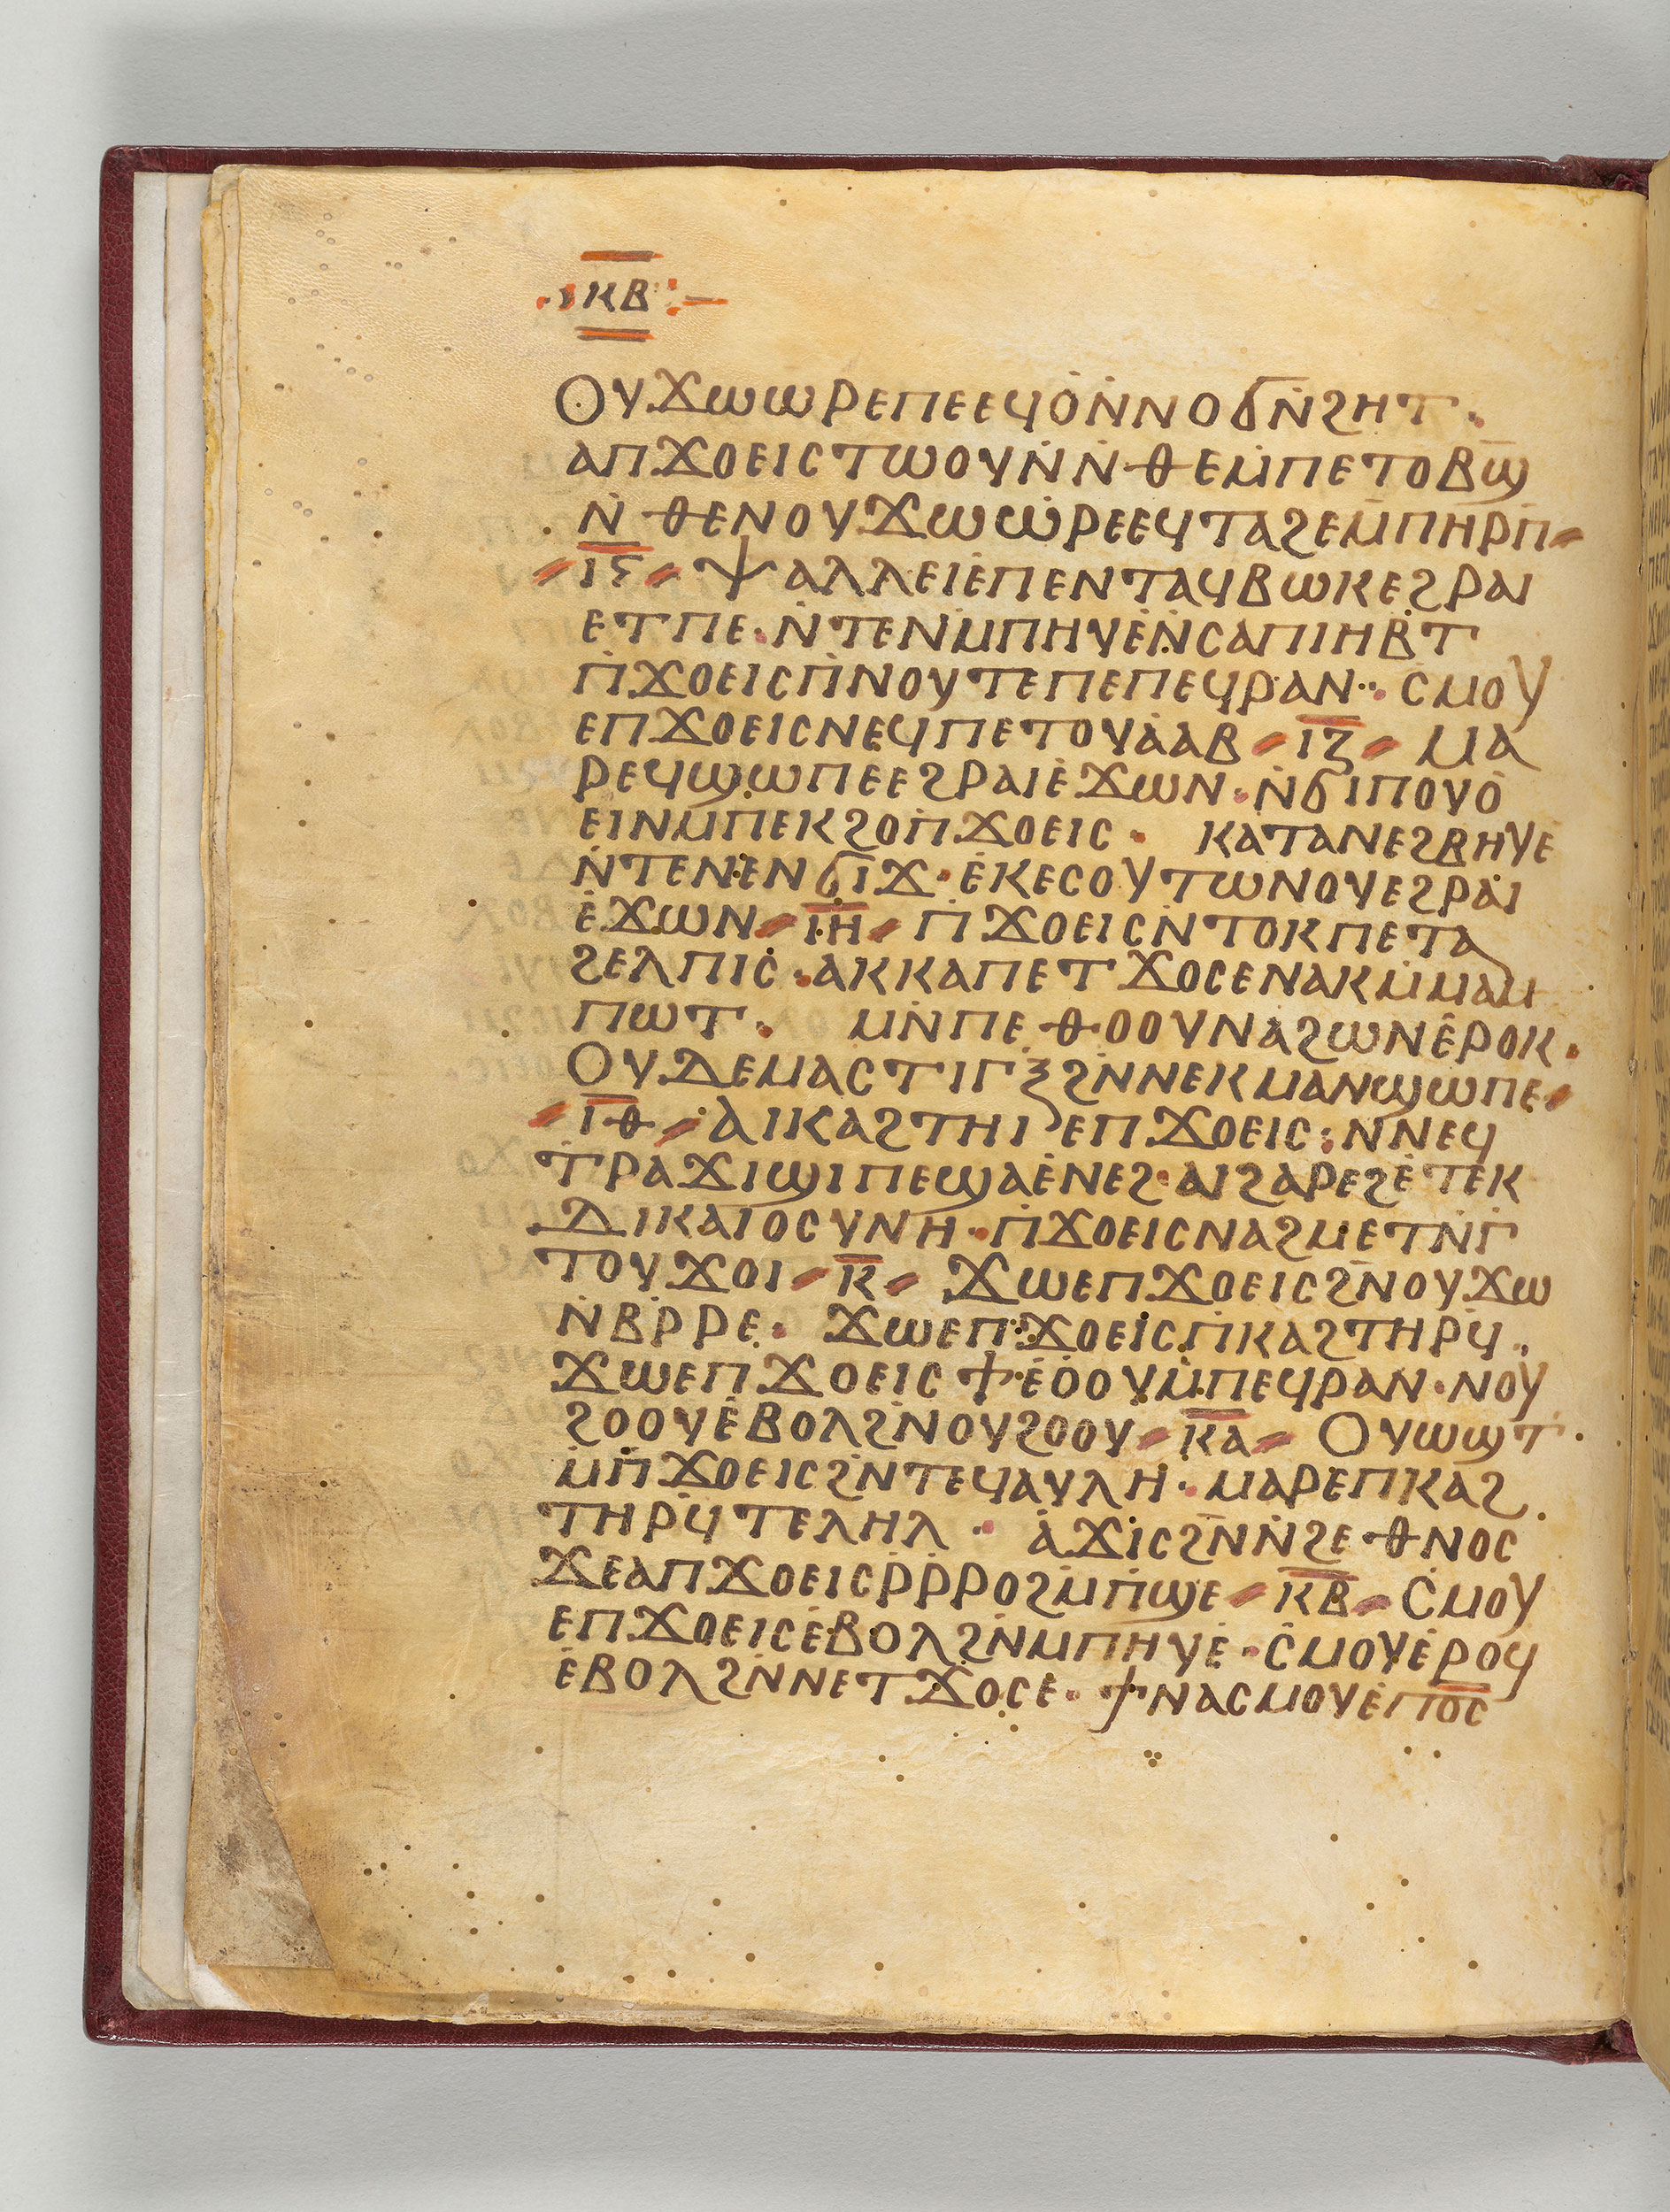 ⲕⲃ
ⲟⲩϫⲱⲱⲣⲉⲡⲉⲉϥⲟ̇ⲛ̇ⲛⲟϭⲛ̇ϩⲏⲧ·
ⲁⲡϫⲟⲉⲓⲥⲧⲱⲟⲩⲛ̇ⲛ̇ⲑⲉⲙ̇ⲡⲉⲧⲟⲃϣ̅
ⲛ̇ⲑⲉⲛⲟⲩϫⲱⲱ̇ⲣⲉⲉϥⲧⲁϩⲉⲙ̅ⲡⲏⲣⲡ̅
ⲓ̅ⲋ̅ ⲯⲁⲗⲗⲉⲓⲉ̇ⲡⲉⲛⲧⲁϥⲃⲱⲕⲉϩⲣⲁⲓ
ⲉⲧⲡⲉ·ⲛ̇ⲧⲉⲛ̇ⲙⲡⲏⲩⲉ̇ⲛ̇ⲥⲁⲡⲓⲏⲃ̇ⲧ
ⲡ̇ϫⲟⲉⲓⲥⲡ̇ⲛⲟⲩⲧⲉⲡⲉⲡⲉϥⲣⲁⲛ··ⲥⲙⲟⲩ
ⲉⲡϫⲟⲉⲓⲥⲛⲉϥⲡⲉⲧⲟⲩⲁ̇ⲁⲃ ⲓ̅ⲍ̅ ⲙⲁ
ⲣⲉϥϣⲱⲡⲉⲉϩⲣⲁⲓⲉ̇ϫⲱⲛ·ⲛ̇ϭⲓⲡⲟⲩⲟ̇
ⲉⲓⲛⲙ̇ⲡⲉⲕϩⲟⲡ̇ϫⲟⲉⲓⲥ· ⲕⲁⲧⲁⲛⲉϩⲃⲏⲩⲉ
ⲛ̇ⲧⲉⲛⲉⲛϭⲓϫ·ⲉ̇ⲕⲉⲥⲟⲩⲧⲱⲛⲟⲩⲉϩⲣⲁⲓ
ⲉ̇ϫⲱⲛ ⲓ̅ⲏ̅ ⲡ̇ϫⲟⲉⲓⲥⲛ̇ⲧⲟⲕⲡⲉⲧⲁ
ϩⲉⲗⲡⲓⲥ·ⲁⲕⲕⲁⲡⲉⲧϫⲟⲥⲉⲛⲁⲕⲙ̇ⲙⲁⲙ
ⲡⲱⲧ· ⲙⲛ̇ⲡⲉⲑⲟⲟⲩⲛⲁϩⲱⲛⲉ̇ⲣⲟⲕ·
ⲟⲩⲇⲉⲙⲁⲥⲧⲓⲅⲝϩⲛ̇ⲛⲉⲕⲙⲁⲛϣⲱⲡⲉ
ⲓ̅ⲑ̅ ⲁⲓⲕⲁϩⲧⲏⲓⲉⲡϫⲟⲉⲓⲥ·ⲛⲛⲉϥ
ⲧⲣⲁϫⲓϣⲓⲡⲉϣⲁⲉ̇ⲛⲉϩ·ⲁⲓϩⲁⲣⲉϩⲉ̇ⲧⲉⲕ
ⲇⲓⲕⲁⲓⲟⲥⲩⲛⲏ·ⲡ̇ϫⲟⲉⲓⲥⲛⲁϩⲙⲉⲧⲛ̇ⲅ̇
ⲧⲟⲩϫⲟⲓ ⲕ̅ ϫⲱⲉⲡϫⲟⲉⲓⲥϩⲛ̅ⲟⲩϫⲱ
ⲛ̇ⲃⲣ̇ⲣⲉ· ϫⲱⲉⲡϫⲟⲉⲓⲥⲡ̇ⲕⲁϩⲧⲏⲣϥ̇·
ϫⲱⲉⲡϫⲟⲉⲓⲥϯⲉ̇ⲟ̇ⲟⲩⲙ̇ⲡⲉϥⲣⲁⲛ·ⲛⲟⲩ
ϩⲟⲟⲩⲉ̇ⲃⲟⲗϩⲛ̇ⲟⲩϩⲟⲟⲩ ⲕ̅ⲁ̅ ⲟⲩⲱϣⲧ·
ⲙ̇ⲡ̇ϫⲟⲉⲓⲥϩⲛ̇ⲧⲉϥⲁⲩⲗⲏ·ⲙⲁⲣⲉⲡⲕⲁϩ
ⲧⲏⲣϥ̇ⲧⲉⲗⲏⲗ· ⲁ̇ϫⲓⲥϩⲛ̅ⲛ̇ϩⲉⲑⲛⲟⲥ
ϫⲉⲁⲡϫⲟⲉⲓⲥⲣ̇ⲣ̇ⲣⲟϩⲙ̇ⲡ̇ϣⲉ ⲕ̅ⲃ̅ ⲥⲙⲟⲩ
ⲉⲡϫⲟⲉⲓⲥⲉ̇ⲃⲟⲗϩⲛ̇ⲙⲡⲏⲩⲉ̇·ⲥⲙⲟⲩⲉ̇ⲣⲟϥ
ⲉ̇ⲃⲟⲗϩⲛ̇ⲛⲉⲧϫⲟⲥⲉ·ϯⲛⲁⲥⲙⲟⲩⲉ̇ⲡⲟ̅ⲥ̅